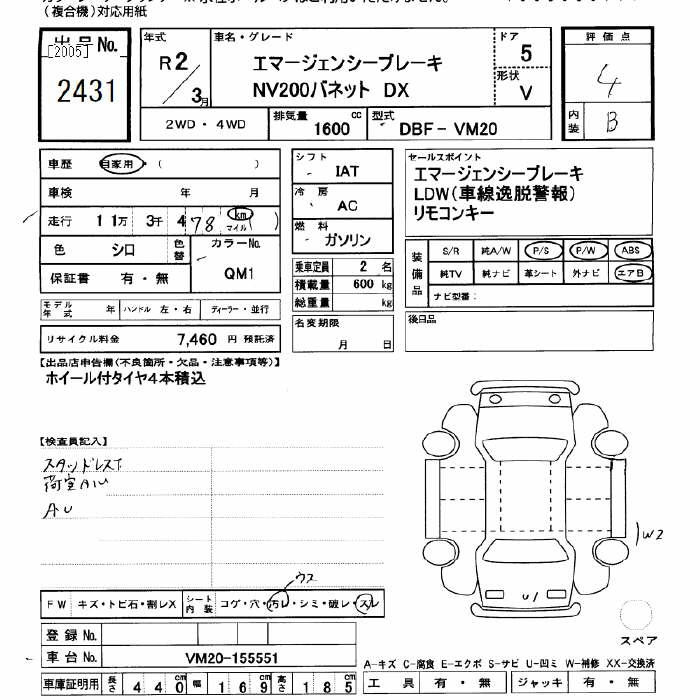 (複合機)対応用紙
出品No. [2005] 2431
年式 R2/3月
車名・グレード
エマージェンシーブレーキ
NV200バネット DX
ドア 5
形状 V
評価点 4
内装 B
2WD・4WD
排気量 1600 cc
型式 DBF-VM20
車歴 自家用・( )
車検 年 月
走行 11万 3千 478 km マイル ( )
色 シロ 色替
カラーNo. QM1
保証書 有・無
モデル年式 年 ハンドル 左・右 ディーラー・並行
リサイクル料金 7,460 円 預託済
シフト IAT
冷房 AC
燃料 ガソリン
乗車定員 2 名
積載量 600 kg
総重量 kg
名変期限 月 日
セールスポイント
エマージェンシーブレーキ
LDW(車線逸脱警報)
リモコンキー
装備品 S/R 純A/W P/S P/W ABS
純TV 純ナビ 革シート 外ナビ エアB
ナビ型番:
後日品
【出品店申告欄(不良箇所・欠品・注意事項等)】
ホイール付タイヤ4本積込
【検査員記入】
スタッドレスT
荷室AU
AU
W2
U1
ウス
FW キズ・トビ石・割レX シート内装 コゲ・穴・汚レ・シミ・破レ・スレ
登録No.
車台No. VM20-155551
車庫証明用 長さ 440cm 幅 169cm 高さ 185cm
スペア
A-キズ C-腐食 E-エクボ S-サビ U-凹ミ W-補修 XX-交換済
工具 有・無 ジャッキ 有・無